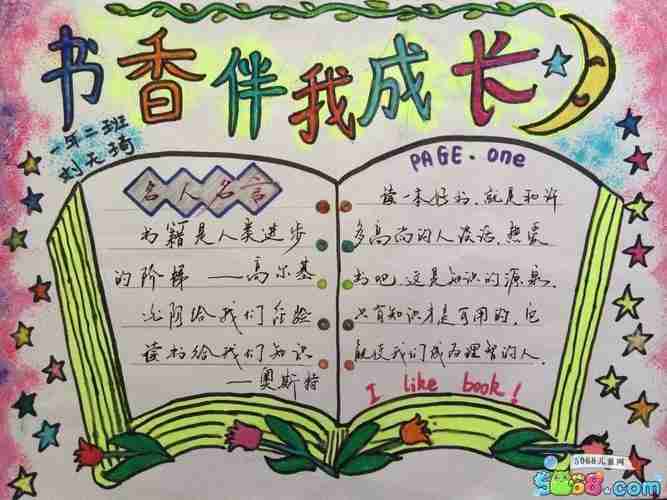 书香伴我成长
一年二班
刘天琦
名人名言
书籍是人类进步
的阶梯——高尔基
生活给我们经验
读书给我们知识
——奥斯特
PAGE.one
读一本好书,就是和许
多高尚的人谈话,热爱
书吧,这是知识的源泉,
只有知识才是可用的,它
能使我们成为理智的人.
I like book!
5068儿童网
5068.com